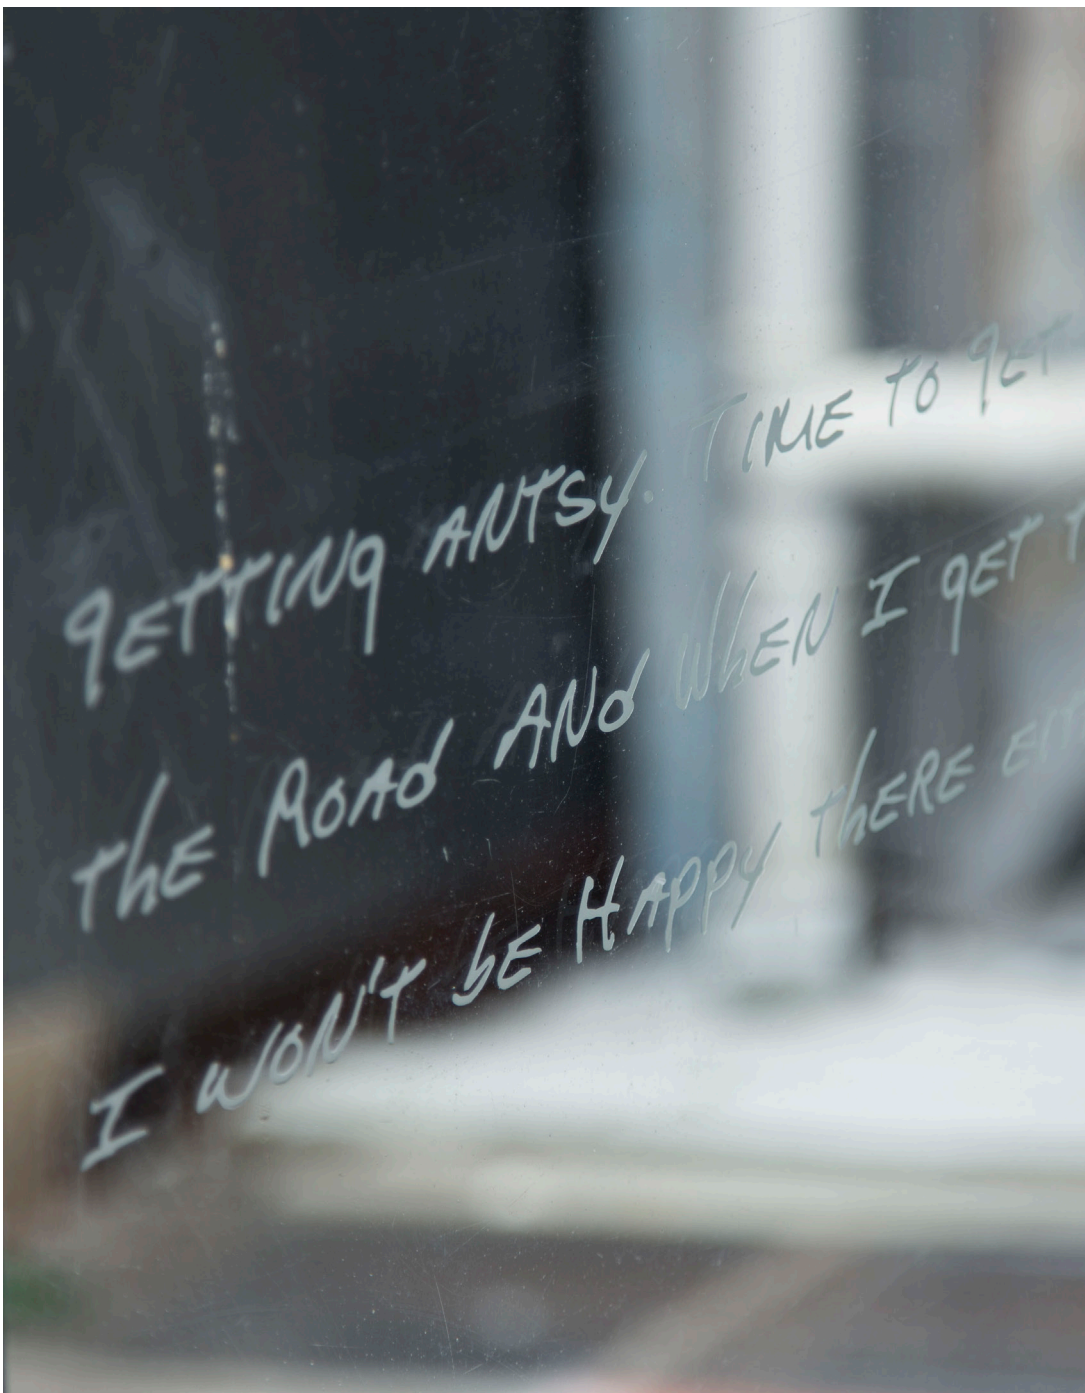 gETTING ANTSY. TIME TO gET
the ROAD ANd WhEN I gET
I WON'T bE HAppy thERE